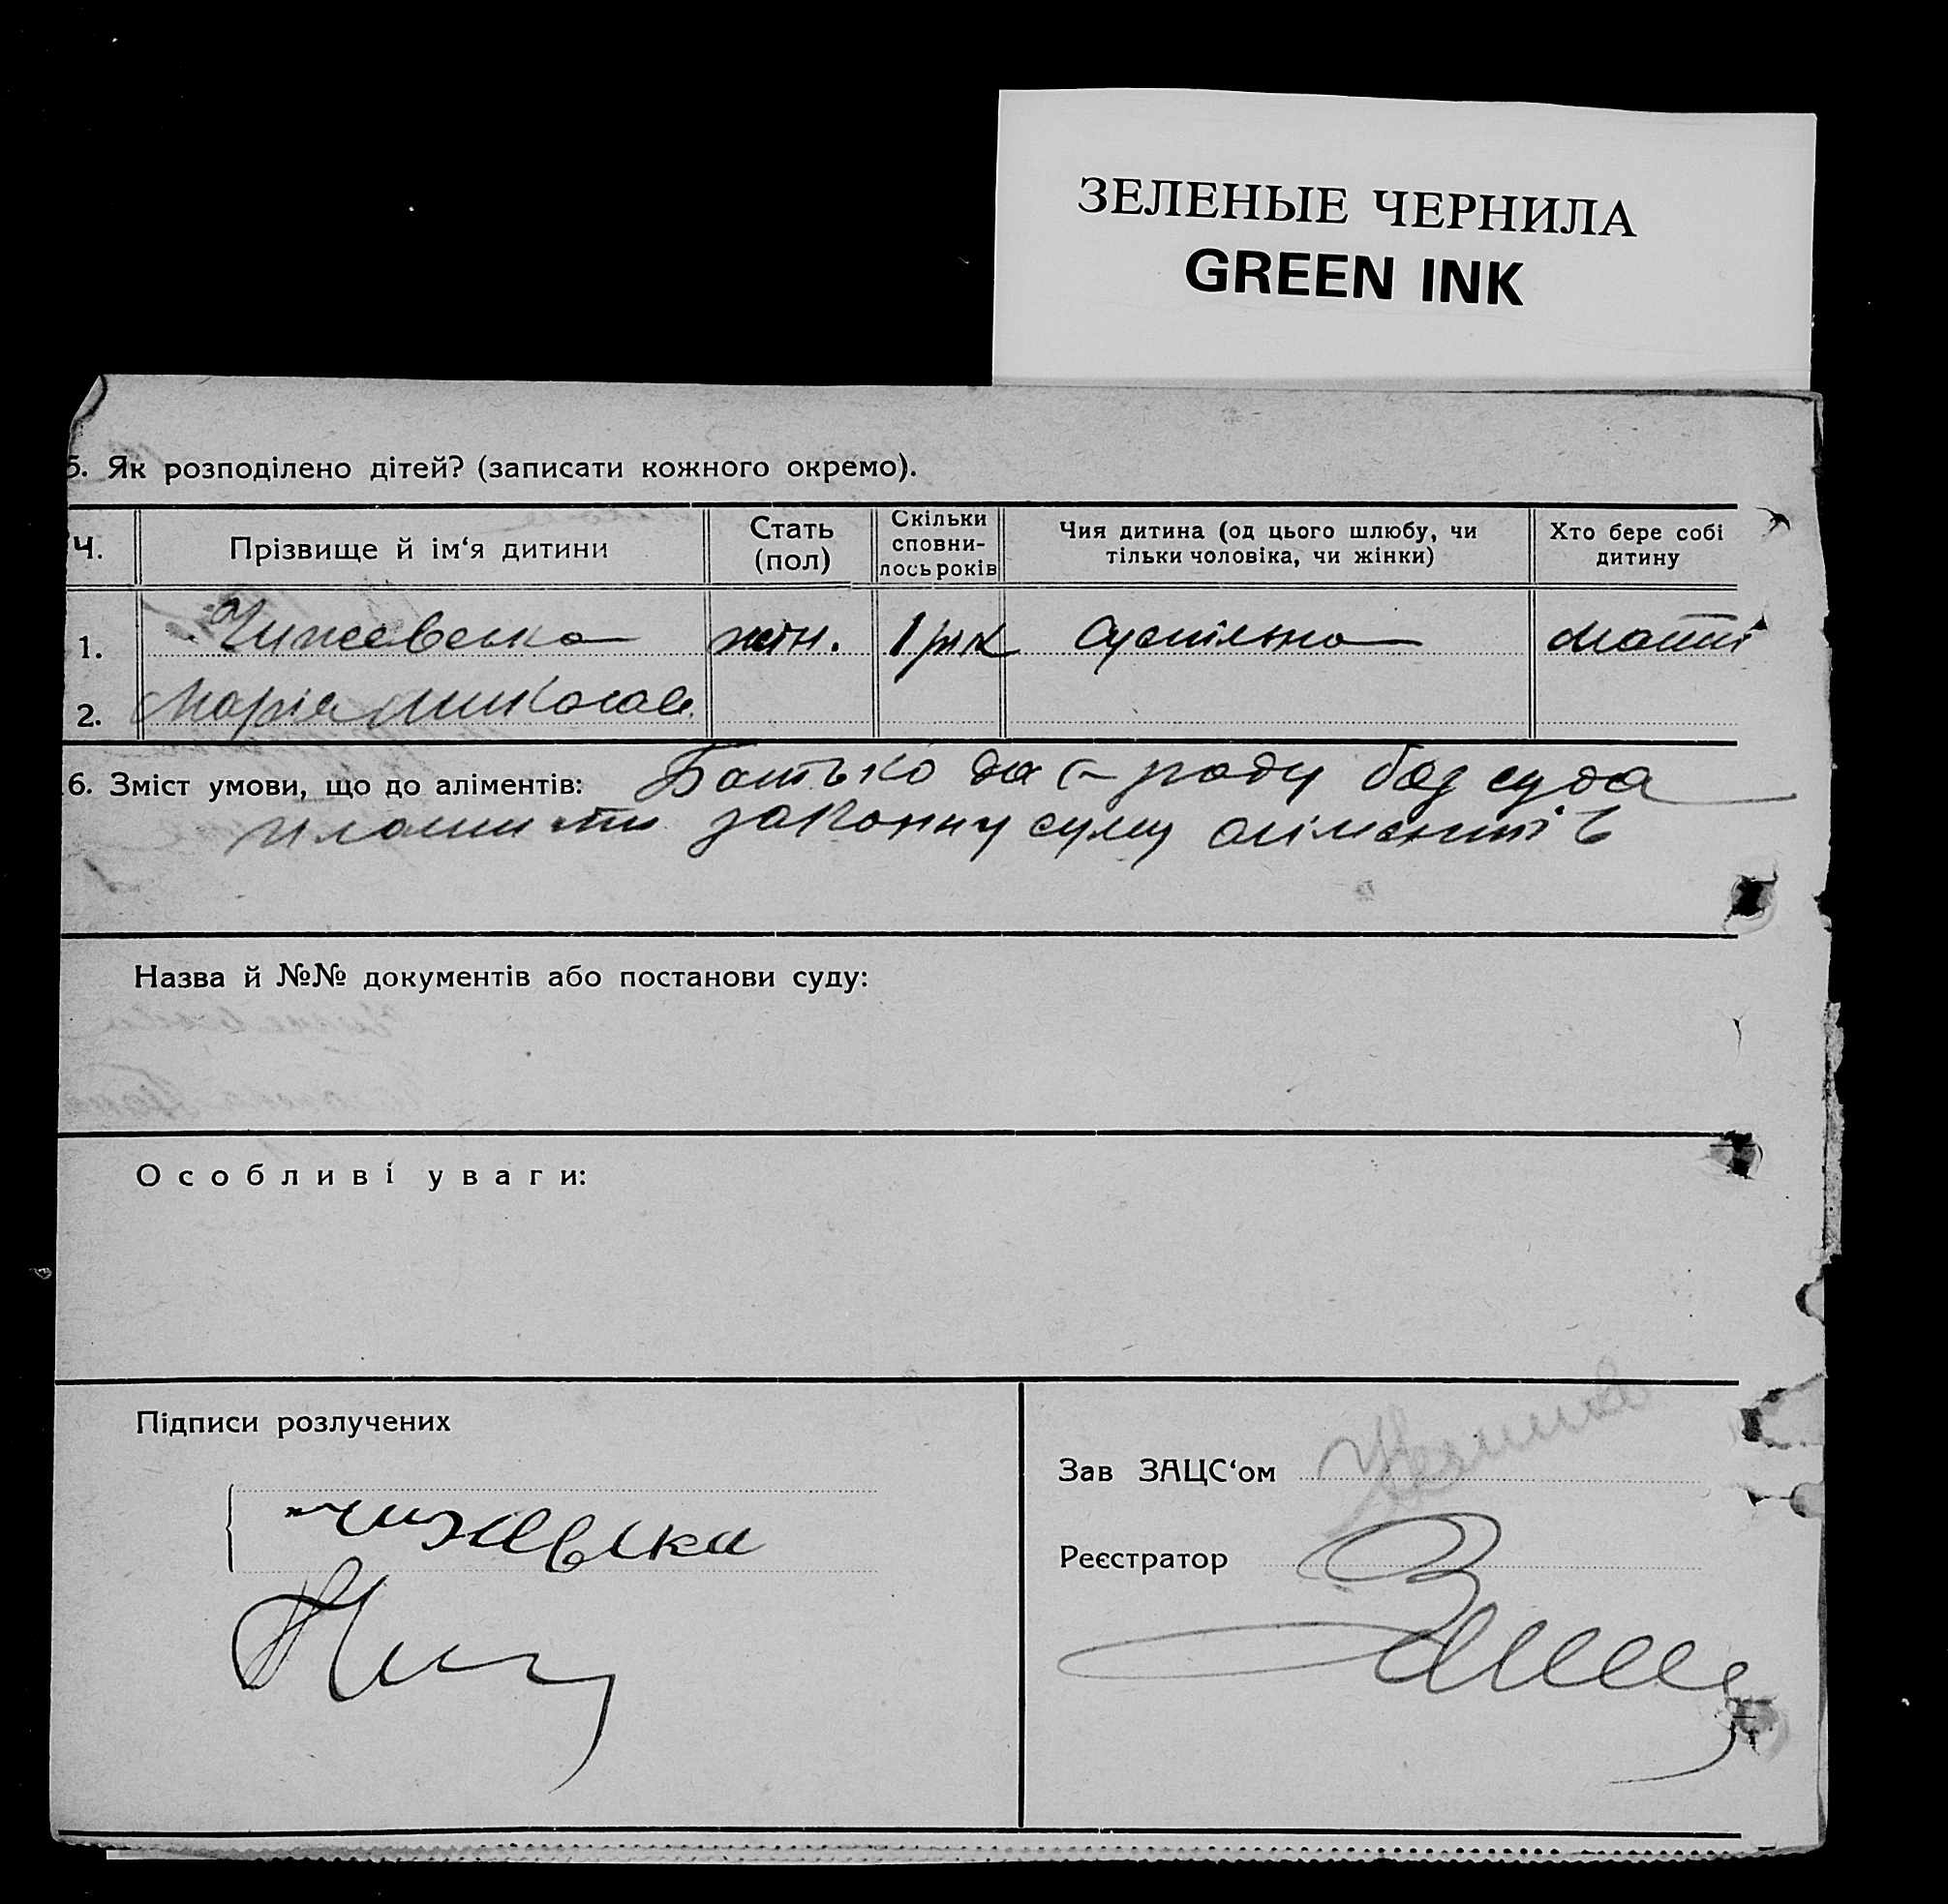 ЗЕЛЕНЫЕ ЧЕРНИЛА
GREEN INK
5. Як розподілено дітей? (записати кожного окремо).
Ч.
Прізвище й ім‘я дитини
Стать
(пол)
Скільки
сповни-
лось років
Чия дитина (од цього шлюбу, чи
тільки чоловіка, чи жінки)
Хто бере собі
дитину
1. Чижевська жін. 1 рік Суспільна Матті
2. Марія Миколаєв.
6. Зміст умови, що до аліментів: Батько дає раду без суда
платити законну суму аліментів
Назва й №№ документів або постанови суду:
Особливі уваги:
Підписи розлучених
Чижевська
Зав ЗАЦС‘ом
Реєстратор